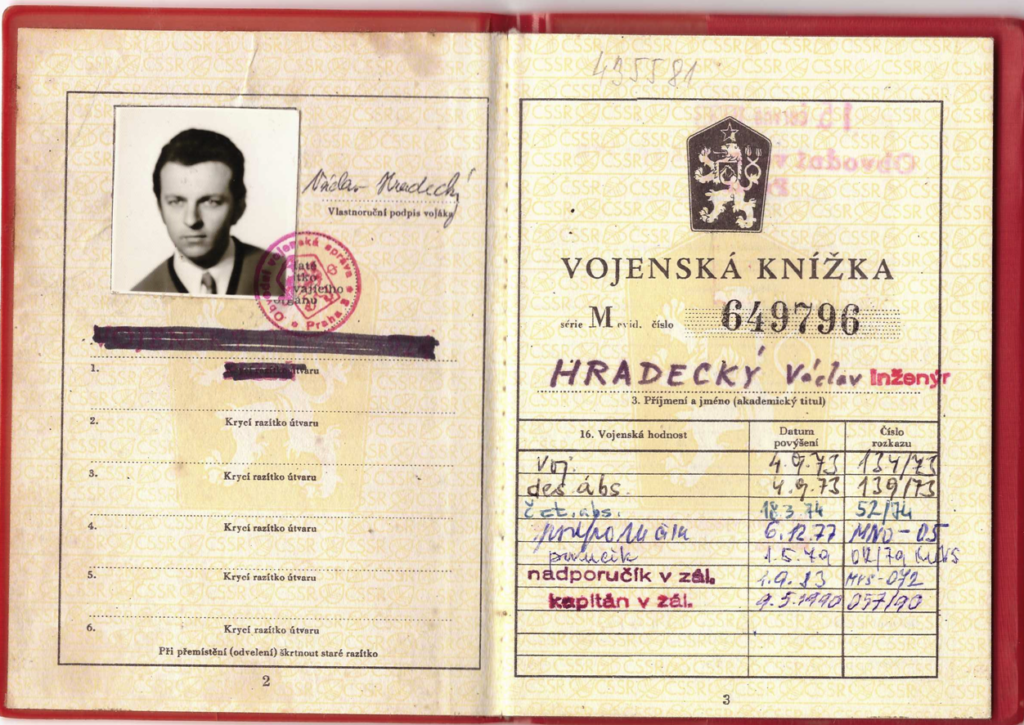 Václav Hradecký
Vlastnoruční podpis vojáka
Obvodní vojenská správa
Praha
1.
útvaru
2.
Krycí razítko útvaru
3.
Krycí razítko útvaru
4.
Krycí razítko útvaru
5.
Krycí razítko útvaru
6.
Krycí razítko útvaru
Při přemístění (odvelení) škrtnout staré razítko
2
435581
VOJENSKÁ KNÍŽKA
série M evid. číslo 649796
HRADECKÝ Václav Inženýr
3. Příjmení a jméno (akademický titul)
16. Vojenská hodnost Datum povýšení Číslo rozkazu
voj. 4.9.73 134/73
des. abs. 4.9.73 139/73
čet. abs. 18.3.74 52/74
podporučík 6.12.77 MNO-05
poručík 1.5.79
nadporučík v zál. 1.9.83
kapitán v zál. 9.5.1990 057/90
3